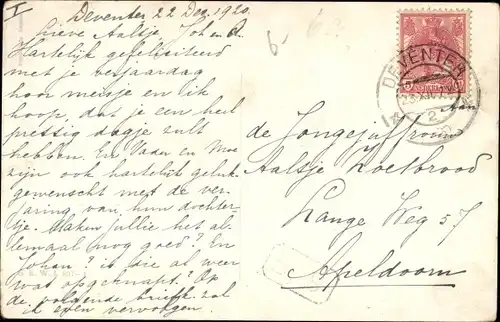 I
Deventer 22 Dec. 1920.
Lieve Aaltje, Joh en A
Hartelijk gefeliciteerd
met je verjaardag
hoor meisje en ik
hoop, dat je een heel
prettig dagje zult
hebben. En Vader en Moe
zijn ook hartelijk geluk
gewenscht met de ver-
jaring van hun dochter-
tje. Maken jullie het al-
lemaal nog goed? En
Johan? is die al weer
wat opgeknapt? Op
de volgende briefk. zal
ik even vervolgen.
6-
DEVENTER
2
Aan
de Jongejuffrouw
Aaltje Koetbrood
Lange Weg 57
Apeldoorn